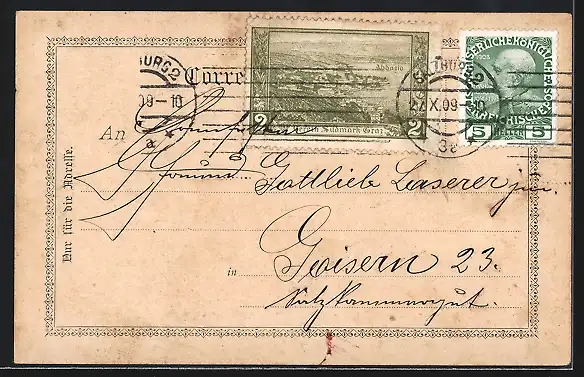 Corre
BURG 2
09-10
Abbazia
2 Verein Südmark Graz 2
27.X.09-10
1908
KAISERLICHE KÖNIGLICHE
ÖSTERREICHISCHE POST
5 HELLER 5
An
Gottlieb Laserer jun.
in Goisern 23.
Salzkammergut.
Nur für die Adresse.